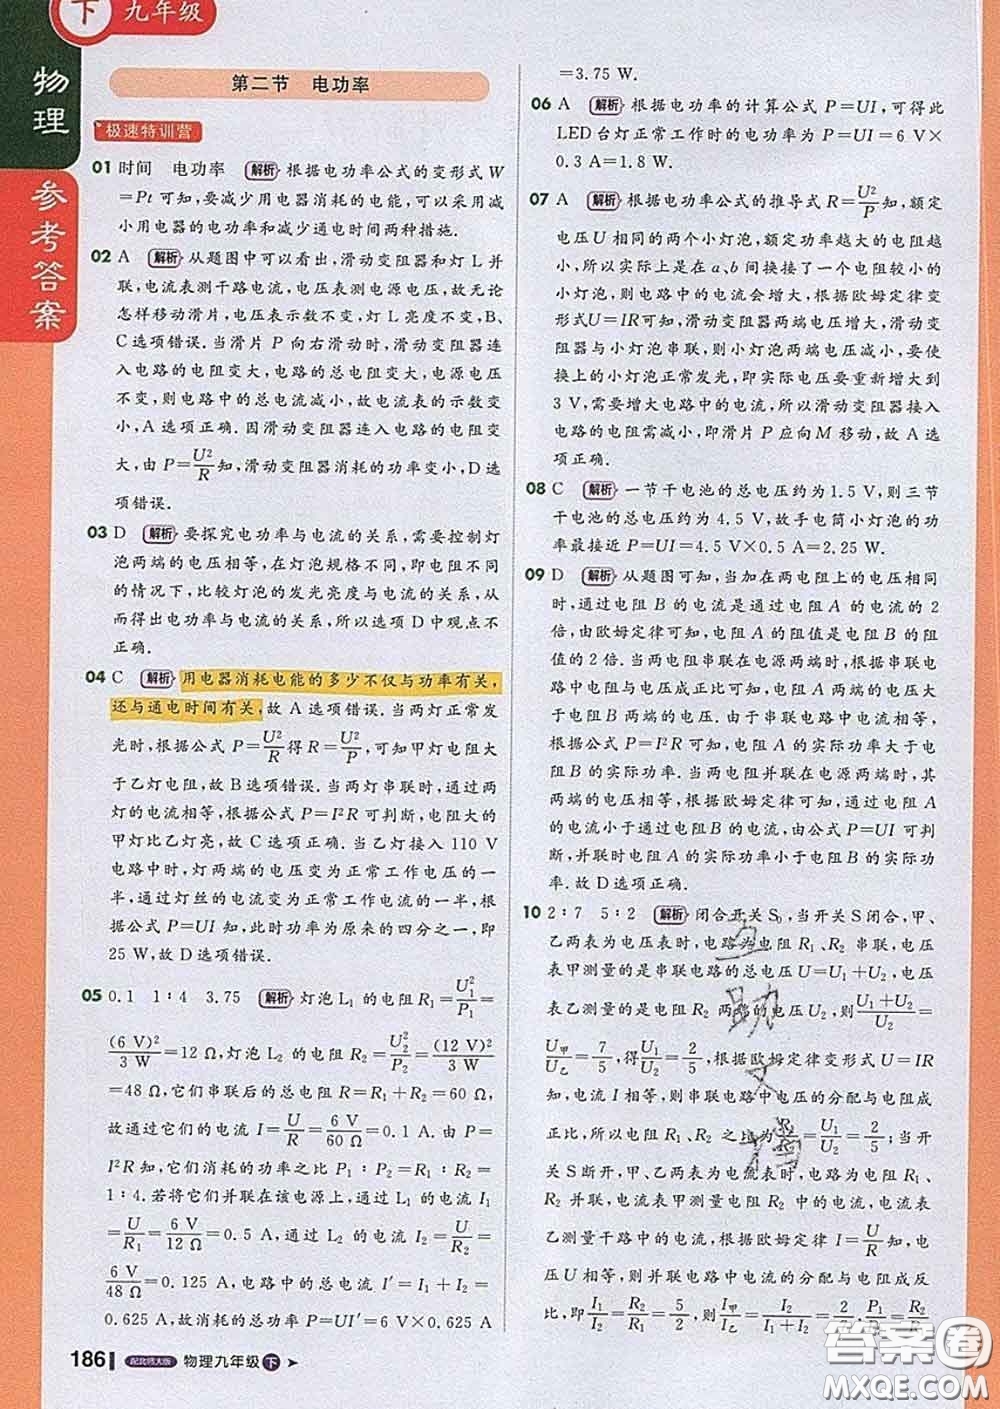 下 九年级
物理
参考答案
第二节 电功率
极速特训营
01 时间 电功率 解析 根据电功率公式的变形式 W
=Pt 可知,要减少用电器消耗的电能,可以采用减
小用电器的电功率和减少通电时间两种措施.
02 A 解析 从题图中可以看出,滑动变阻器和灯 L 并
联,电流表测干路电流,电压表测电源电压,故无论
怎样移动滑片,电压表示数不变,灯 L 亮度不变,B、
C 选项错误.当滑片 P 向右滑动时,滑动变阻器连
入电路的电阻变大,电路的总电阻变大,电源电压
不变,则电路中的总电流减小,故电流表的示数变
小,A 选项正确.因滑动变阻器连入电路的电阻变
大,由 P=U²/R 知,滑动变阻器消耗的功率变小,D 选
项错误.
03 D 解析 要探究电功率与电流的关系,需要控制灯
泡两端的电压相等,在灯泡规格不同,即电阻不同
的情况下,比较灯泡的发光亮度与电流的关系,从
而得出电功率与电流的关系,所以选项 D 中观点不
正确.
04 C 解析 用电器消耗电能的多少不仅与功率有关,
还与通电时间有关,故 A 选项错误.当两灯正常发
光时,根据公式 P=U²/R 得 R=U²/P,可知甲灯电阻大
于乙灯电阻,故 B 选项错误.当两灯串联时,通过两
灯的电流相等,根据公式 P=I²R 可判断,电阻大的
甲灯比乙灯亮,故 C 选项正确.当乙灯接入 110 V
电路中时,灯两端的电压变为正常工作电压的一
半,通过灯丝的电流变为正常工作电流的一半,根
据公式 P=UI 知,此时功率为原来的四分之一,即
25 W,故 D 选项错误.
05 0.1 1:4 3.75 解析 灯泡 L₁ 的电阻 R₁=U₁²/P₁=
(6 V)²/3 W=12 Ω,灯泡 L₂ 的电阻 R₂=U₂²/P₂=(12 V)²/3 W
=48 Ω,它们串联后的总电阻 R=R₁+R₂=60 Ω,
故通过它们的电流 I=U/R=6 V/60 Ω=0.1 A.由 P=
I²R 知,它们消耗的功率之比 P₁:P₂=R₁:R₂=
1:4.若将它们并联在该电源上,通过 L₁ 的电流 I₁
=U/R₁=6 V/12 Ω=0.5 A,通过 L₂ 的电流 I₂=U/R₂=
6 V/48 Ω=0.125 A,电路中的总电流 I′=I₁+I₂=
0.625 A,故总功率 P=UI′=6 V×0.625 A
=3.75 W.
06 A 解析 根据电功率的计算公式 P=UI,可得此
LED 台灯正常工作时的电功率为 P=UI=6 V×
0.3 A=1.8 W.
07 A 解析 根据电功率公式的推导式 R=U²/P 知,额定
电压 U 相同的两个小灯泡,额定功率大的电阻较
小,所以实际上是在 a、b 间换接了一个电阻较小的
小灯泡,则电路中的电流会增大,根据欧姆定律变
形式U=IR可知,滑动变阻器两端电压增大,滑动变
阻器与小灯泡串联,则小灯泡两端电压减小,要使
换上的小灯泡正常发光,即实际电压要重新增大到
3 V,需要增大电路中的电流,所以滑动变阻器接入
电路的电阻需减小,即滑片 P 应向 M 移动,故 A 选
项正确.
08 C 解析 一节干电池的总电压约为 1.5 V,则三节
干电池的总电压约为 4.5 V,故手电筒小灯泡的功
率最接近 P=UI=4.5 V×0.5 A=2.25 W.
09 D 解析 从题图可知,当加在两电阻上的电压相同
时,通过电阻 B 的电流是通过电阻 A 的电流的 2
倍,由欧姆定律可知,电阻 A 的阻值是电阻 B 的阻
值的 2 倍.当两电阻串联在电源两端时,因串联电
路电压与电阻成正比可知,电阻 A 两端的电压大于
电阻 B 两端的电压.由于串联电路中电流相等,
根据 P=I²R 可知,电阻 A 的实际功率大于电阻 B
的实际功率.当两电阻并联在电源两端时,其
两端的电压相等,根据欧姆定律可知,通过电阻 A
的电流小于通过电阻 B 的电流,由公式 P=UI 可判
断,并联时电阻 A 的实际功率小于电阻 B 的实际功
率.故 D 选项正确.
10 2:7 5:2 解析 闭合开关 S₀,当开关 S 闭合,甲、
乙两表为电压表时,电路为电阻 R₁、R₂ 串联,电压
表甲测量的是串联电路的总电压 U=U₁+U₂,电压
表乙测量的是 R₂ 两端的电压 U₂,则(U₁+U₂)/U₂=
U甲/U乙=7/5,得U₁/U₂=2/5,根据欧姆定律变形式 U=IR
知,电流 I 相等,则串联电路中电压的分配与电阻成
正比,所以电阻 R₁、R₂ 之比为R₁/R₂=U₁/U₂=2/5;当开
关 S 断开,甲、乙两表为电流表时,电路为电阻 R₁、
R₂ 并联,电流表甲测量电阻 R₂ 中的电流,电流表
乙测量干路的电流.根据欧姆定律 I=U/R 知,电
压 U 相等,则并联电路中电流的分配与电阻成反
比,即I₁/I₂=R₂/R₁=5/2,则I甲/I乙=I₂/(I₁+I₂)=2/7,P₁/P₂=R₂/R₁
互助文档
186 配北师大版 物理九年级 下
答案圈
MXQE.COM